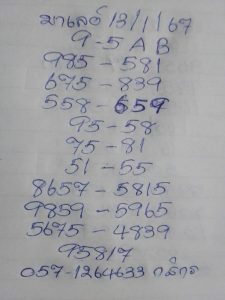 มาเลย์ 13/1/67
9-5 A B
985-581
675-839
558-659
95-58
75-81
51-55
8657-5815
9859-5965
5675-4839
95817
057-1264633